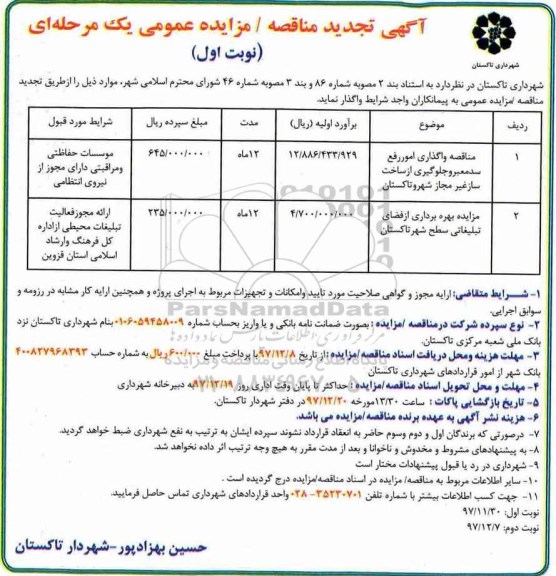 آگهی تجدید مناقصه / مزایده عمومی یک مرحله‌ای
(نوبت اول)
شهرداری تاکستان
شهرداری تاکستان در نظردارد به استناد بند ۲ مصوبه شماره ۸۶ و بند ۳ مصوبه شماره ۴۶ شورای محترم اسلامی شهر، موارد ذیل را ازطریق تجدید
مناقصه /مزایده عمومی به پیمانکاران واجد شرایط واگذار نماید.
ردیف موضوع برآورد اولیه (ریال) مدت مبلغ سپرده ریال شرایط مورد قبول
۱ مناقصه واگذاری اموررفع سدمعبروجلوگیری ازساخت سازغیر مجاز شهروتاکستان ۱۲/۸۸۶/۴۳۳/۹۲۹ ۱۲ماه ۶۴۵/۰۰۰/۰۰۰ موسسات حفاظتی ومراقبتی دارای مجوز از نیروی انتظامی
۲ مزایده بهره برداری ازفضای تبلیغاتی سطح شهرتاکستان ۴/۷۰۰/۰۰۰/۰۰۰ ۱۲ماه ۲۳۵/۰۰۰/۰۰۰ ارائه مجوزفعالیت تبلیغات محیطی ازاداره کل فرهنگ وارشاد اسلامی استان قزوین
۱- شــرایط متقاضی: ارایه مجوز و گواهی صلاحیت مورد تایید وامکانات و تجهیزات مربوط به اجرای پروژه و همچنین ارایه کار مشابه در رزومه و
سوابق اجرایی.
۲- نوع سپرده شرکت درمناقصه /مزایده : بصورت ضمانت نامه بانکی و یا واریز بحساب شماره ۰۱۰۶۰۵۹۴۵۸۰۰۹ بنام شهرداری تاکستان نزد
بانک ملی شعبه مرکزی تاکستان.
۳- مهلت هزینه ومحل دریافت اسناد مناقصه/مزایده: از تاریخ ۹۷/۱۲/۸ با پرداخت مبلغ ۶۰۰/۰۰۰ ریال به شماره حساب ۴۰۰۸۲۷۹۶۸۳۹۳
بانک شهر از امور قراردادهای شهرداری تاکستان
۴- مهلت و محل تحویل اسناد مناقصه/مزایده: حداکثر تا پایان وقت اداری روز ۹۷/۱۲/۱۹ به دبیرخانه شهرداری
۵- تاریخ بازگشایی پاکات : ساعت ۱۳/۳۰مورخه ۹۷/۱۲/۲۰ در دفتر شهردار تاکستان.
۶- هزینه نشر آگهی به عهده برنده مناقصه/مزایده می باشد.
۷- درصورتی که برندگان اول و دوم وسوم حاضر به انعقاد قرارداد نشوند سپرده ایشان به ترتیب به نفع شهرداری ضبط خواهد گردید.
۸- به پیشنهادهای مشروط و مخدوش و ناخوانا و بعد از مدت مقرر به هیچ وجه ترتیب اثر داده نخواهد شد.
۹- شهرداری در رد یا قبول پیشنهادات مختار است
۱۰- سایر اطلاعات مربوط به مناقصه/ مزایده در اسناد مناقصه/مزایده درج گردیده است .
۱۱- جهت کسب اطلاعات بیشتر با شماره تلفن ۳۵۲۳۰۷۰۱- ۰۲۸ واحد قراردادهای شهرداری تماس حاصل فرمایید.
نوبت اول: ۹۷/۱۱/۳۰
نوبت دوم: ۹۷/۱۲/۷
حسین بهزادپور-شهردار تاکستان
ParsNamadData